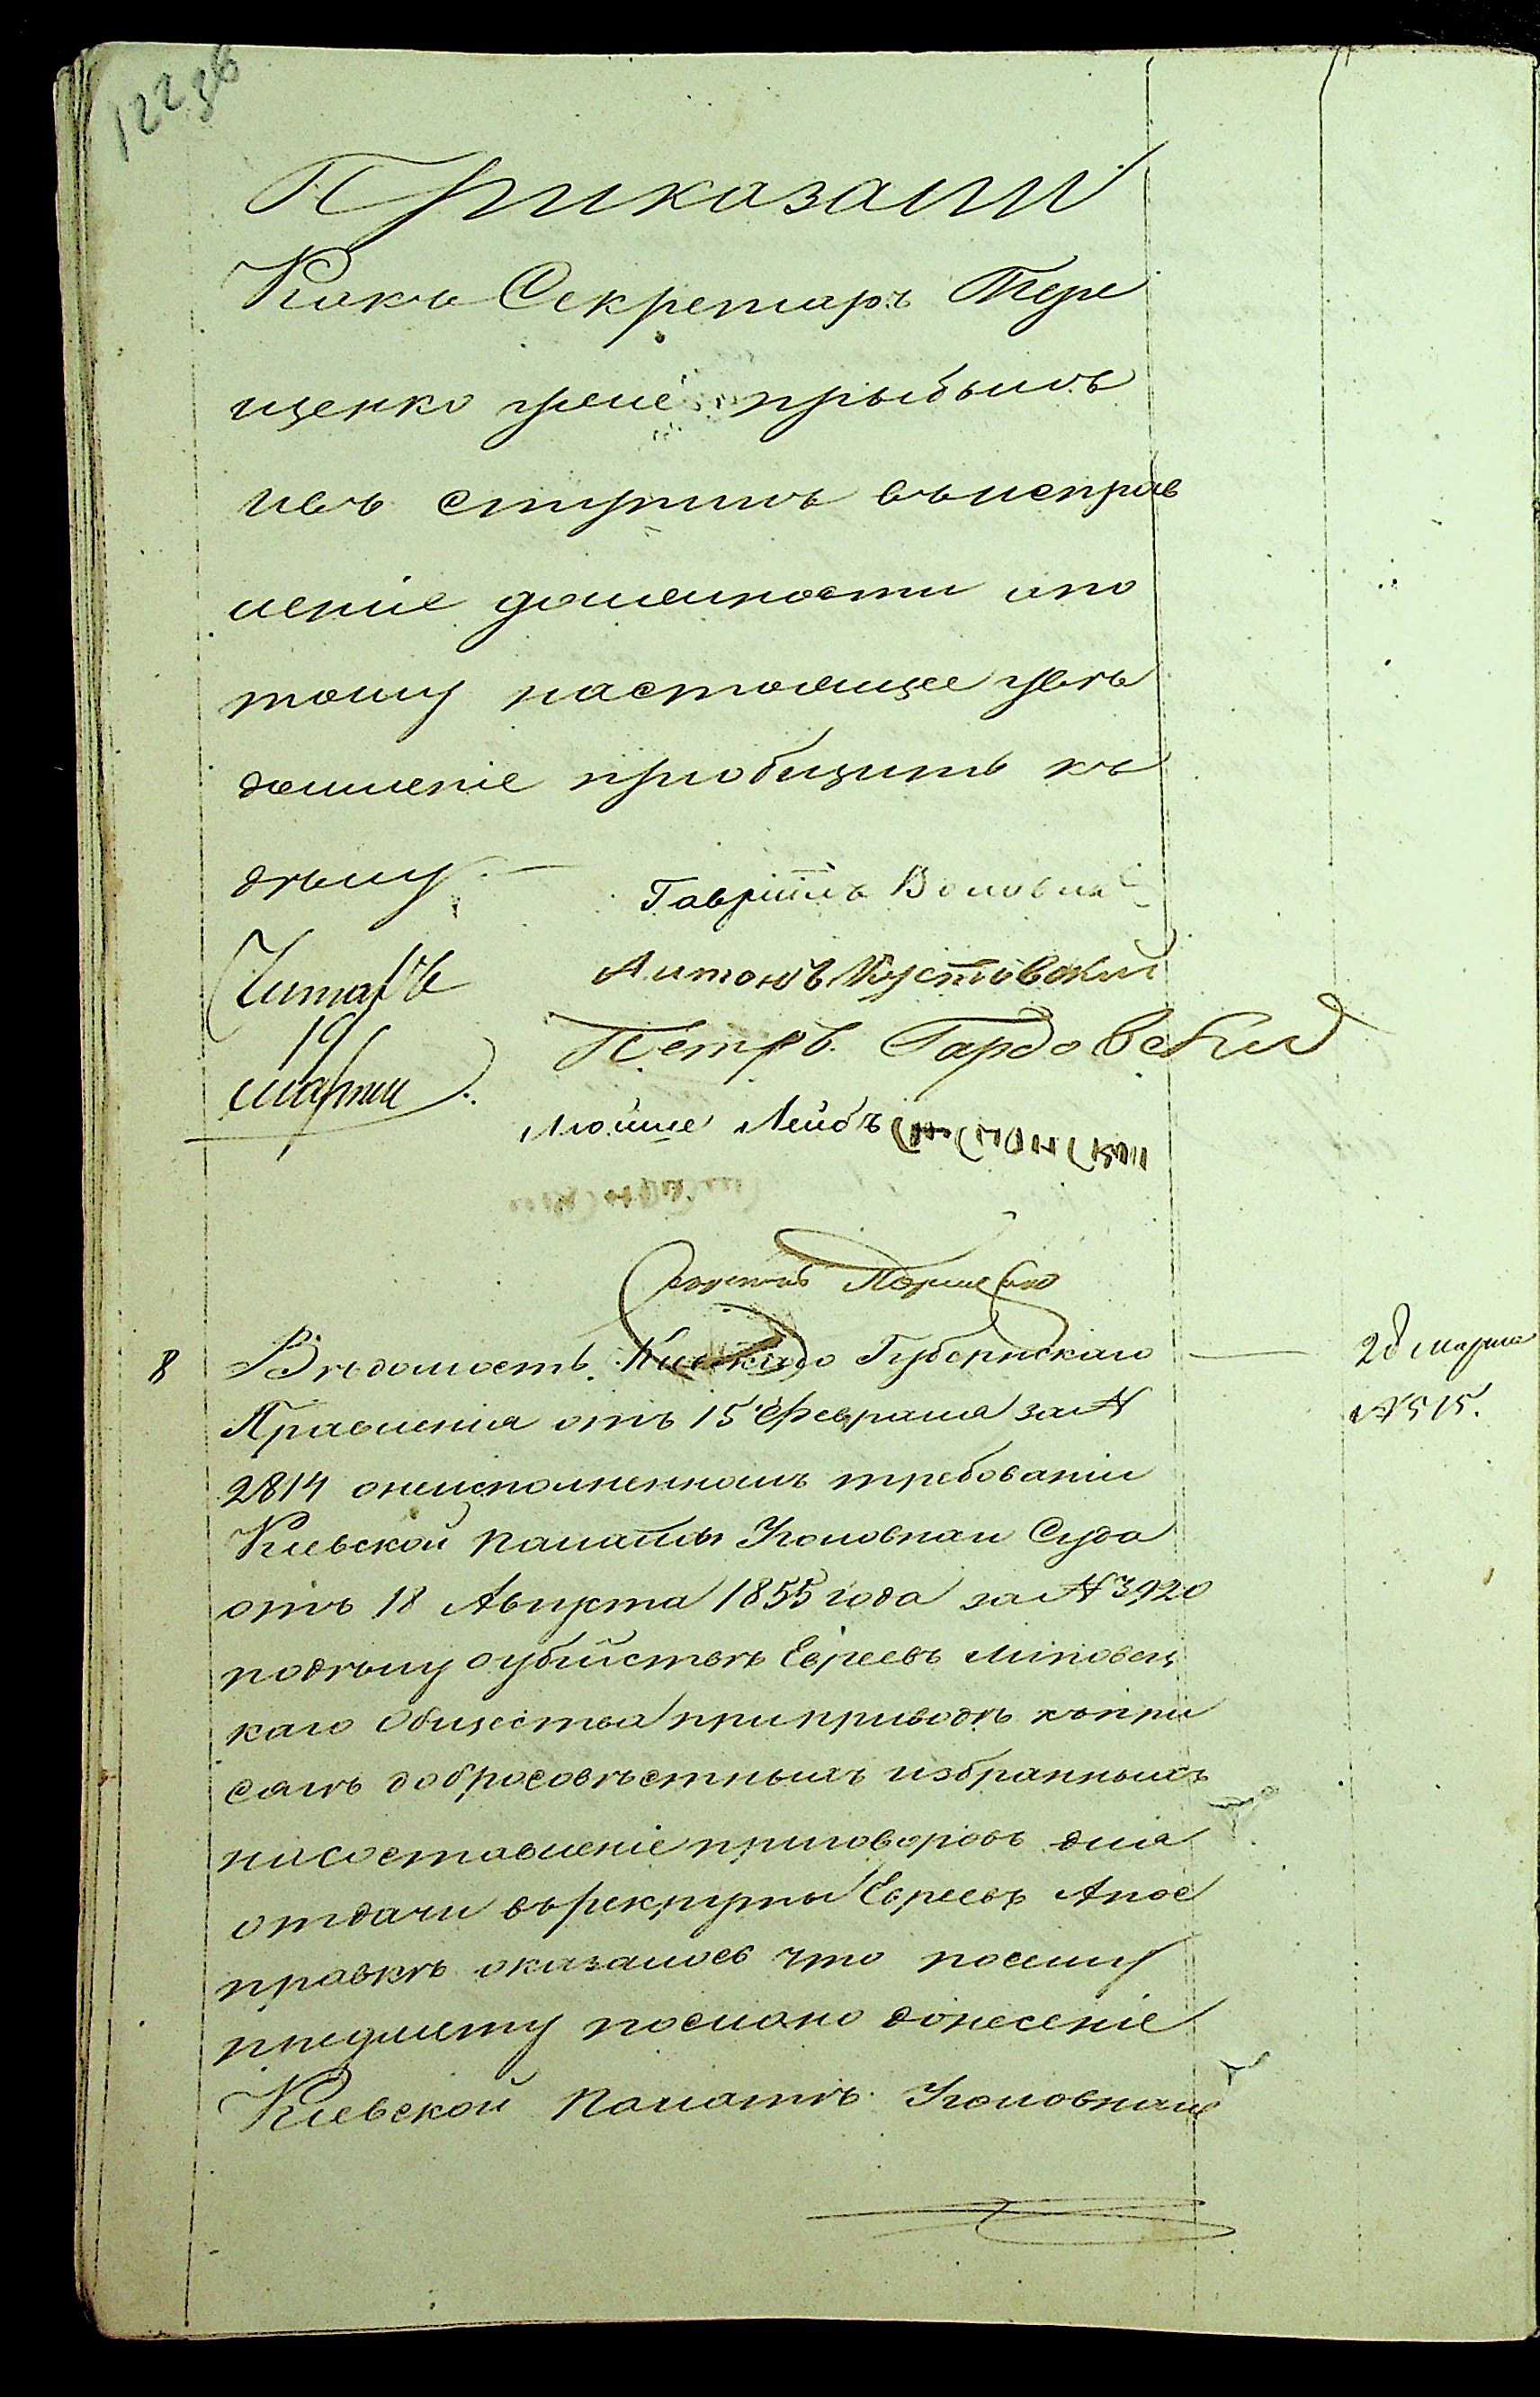 122 36
Приказали
Какъ Секретарь Тере
щенко уже прыбылъ
ивъ ступилъ въ исправ
леніе должности апо
тому настоящее увѣ
домленіе приобщить къ
дѣлу. —
Гавріилъ
Читалъ
Антонъ
19
Петръ Гардовскій
марта
Мойше Лейбъ
Секретарь
8 Вѣдомость Кіевскаго Губернскаго — 28 марта
Правленія отъ 15 Февраля за №
№ 515.
2814 онеисполненномъ требованіи
Кіевской палаты Уголовнаи Суда
отъ 18 Августа 1855 года за № 3920
подѣлу оубійствѣ Евреевъ Липовец
каго Общества при приводѣ къ при
сягѣ добросовѣстныхъ избранныхъ
на составленіе приговоровъ для
отдачи въ рекруты Евреевъ Апос
правкѣ оказалось что посему
предмету послано донесеніе
Кіевской палатѣ Уголовнаго